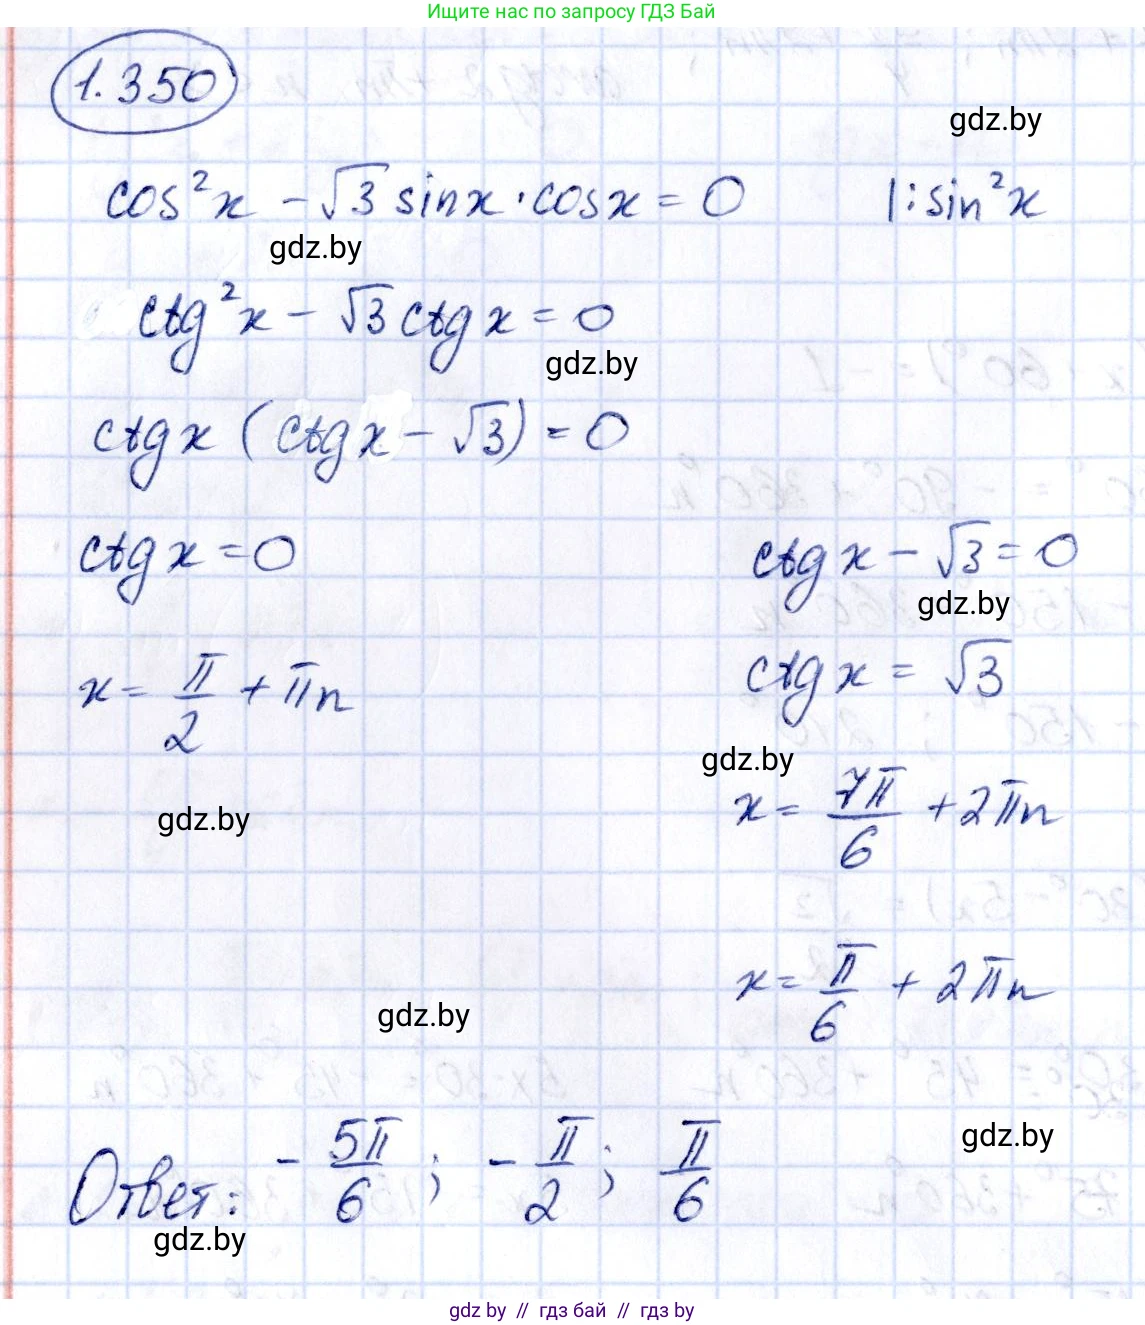 Ищите нас по запросу ГДЗ Бай
1.350
gdz.by
cos²x - √3 sinx · cosx = 0 |: sin²x
gdz.by
ctg²x - √3 ctgx = 0
gdz.by
ctgx (ctgx - √3) = 0
ctgx = 0 ctgx - √3 = 0
gdz.by
x = π/2 + πn ctgx = √3
gdz.by
gdz.by x = 7π/6 + 2πn
x = π/6 + 2πn
gdz.by
gdz.by
Ответ: - 5π/6 ; - π/2 ; π/6
gdz.by
gdz by // гдз бай // гдз by